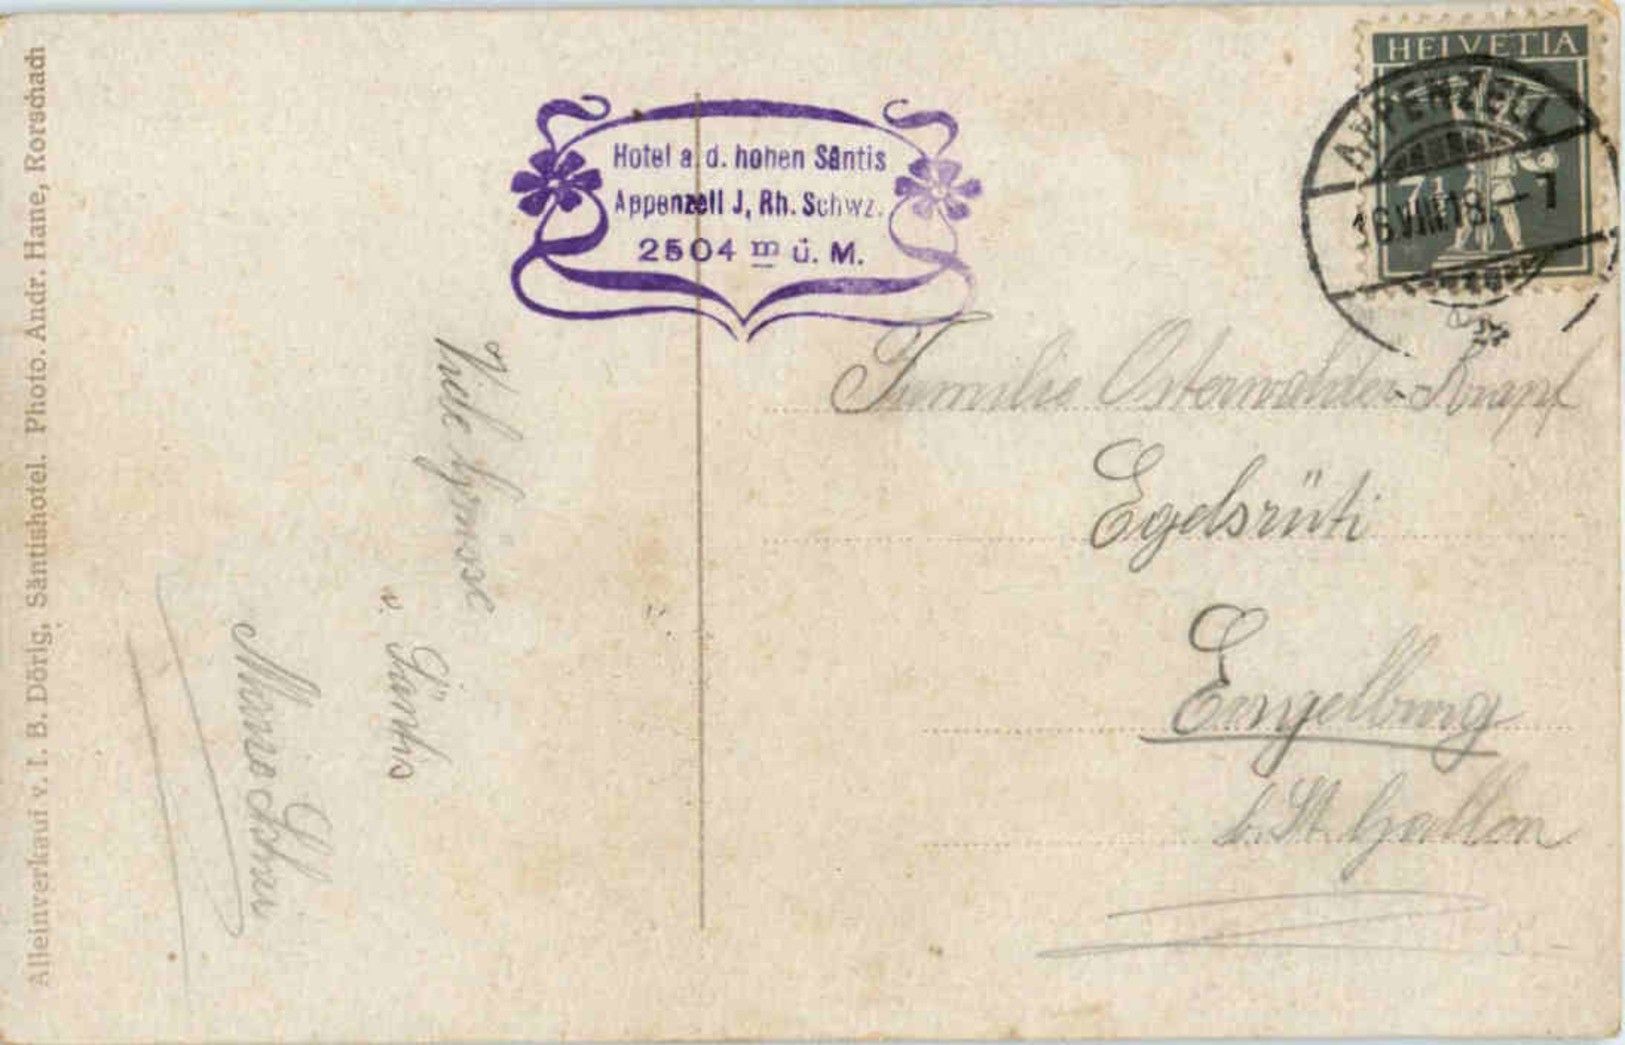 Alleinverkauf v. I. B. Dörig, Säntishotel. Photo. Andr. Hane, Rorschach
Hotel a. d. hohen Säntis
Appenzell J, Rh. Schwz.
2504 m ü. M.
HELVETIA
7½
APPENZELL
16.VIII.18.–7
Viele Grüsse
v. Säntis
Familie Osterwalder-Knapf
Egelsrüti
Engelburg
b. St. Gallen